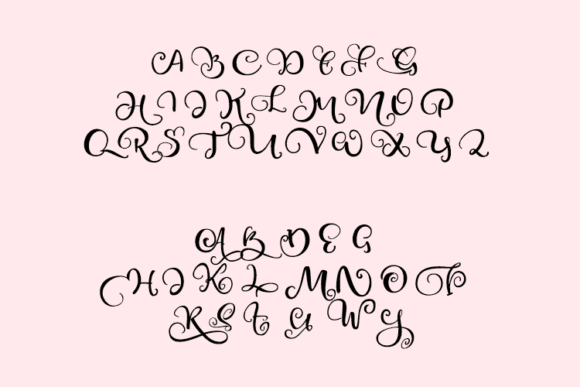 A B C D E F G
H I J K L M N O P
Q R S T U V W X Y Z
A B D E G
H J K L M N O P
R S t U W Y